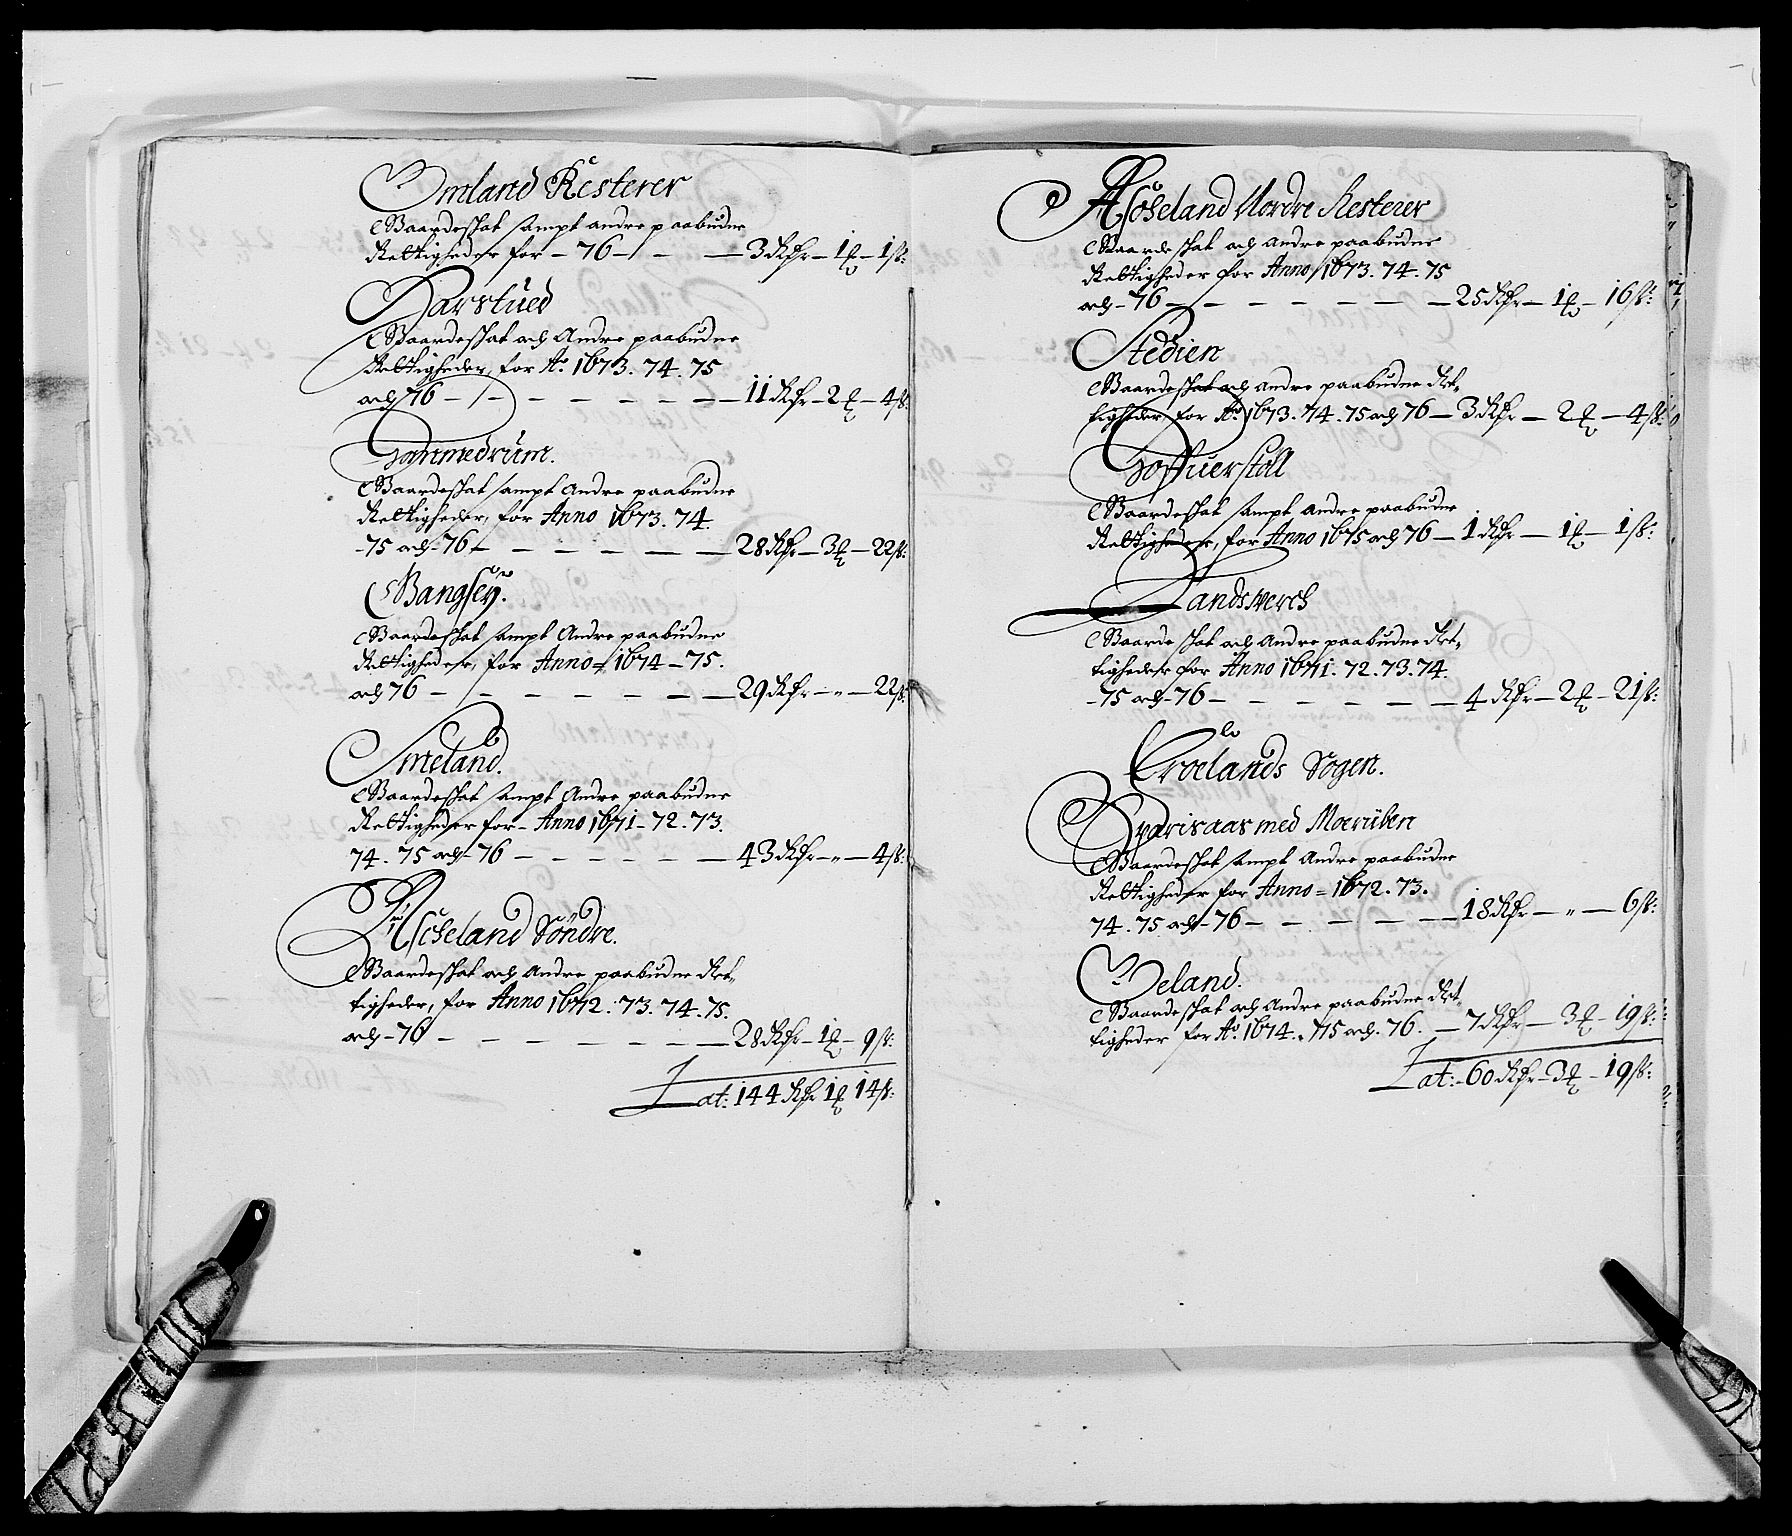 Omland Resterer
Gaardeskat sampt andre paabudne
Rettigheder for – 76 – – – 3 Rdr – 1 ℔ – 1 ß:
Harstued
Gaardeskat och Andre paabudne
Rettigheder, for Ao. 1673. 74. 75
och 76 – – – – – – – 11 Rdr – 2 ℔ – 4 ß:
Gommedrum.
Gaardeskat sampt Andre paabudne
Rettigheder, for Anno 1673. 74.
-75 och -76 – – – – – – 28 Rdr – 3 ℔ – 22 ß:
Bangsey.
Gaardeskat sampt Andre paabudne
Rettigheder, for Anno = 1674 – 75.
och 76 – – – – – – – 29 Rdr – „ – 22 ß:
Smeland.
Gaardeskat sampt Andre paabudne
Rettigheder for – Anno 1671 – 72. 73.
74. 75 och -76 – – – – – – 43 Rdr – „ – 4 ß:
Ascheland Söndre.
Gaardeskat och Andre paabudne Ret-
tigheder, for Anno 1672. 73. 74. 75.
och -76 – – – – – – – 28 Rdr – 1 ℔ – 9 ß:
Lat: 144 Rdr 1 ℔ 14 ß:
Ascheland Nordre Resterer
Gaardeskat och Andre paabudne
Rettigheder for Anno 1673. 74. 75
och -76 – – – – – – – 25 Rdr – 1 ℔ – 16 ß:
Stedien
Gaardeskat och andre paabudne Ret-
tigheder, for Ao 1673. 74. 75 och 76 – 3 Rdr – 2 ℔ – 4 ß:
Hoffuerstall
Gaardeskat sampt andre paabudne
Rettigheder, for Anno 1675 och 76 – 1 Rdr – 1 ℔ – 1 ß:
Landsverch
Gaardeskat och Andre paabudne Ret-
tigheder for Anno 1671. 72. 73. 74.
-75 och -76 – – – – – – 4 Rdr – 2 ℔ – 21 ß:
Eroelands Sogen.
Gyarisaas med Moeruben
Gaardeskat sampt Andre paabudne
Rettigheder for Anno = 1672. 73.
74. 75 och -76 – – – – – 18 Rdr – „ – 6 ß:
Veland.
Gaardeskat och Andre paabudne Ret-
tigheder for Ao. 1674. 75 och. 76. – 7 Rdr – 3 ℔ – 19 ß:
Lat: 60 Rdr – 3 ℔ – 19 ß: